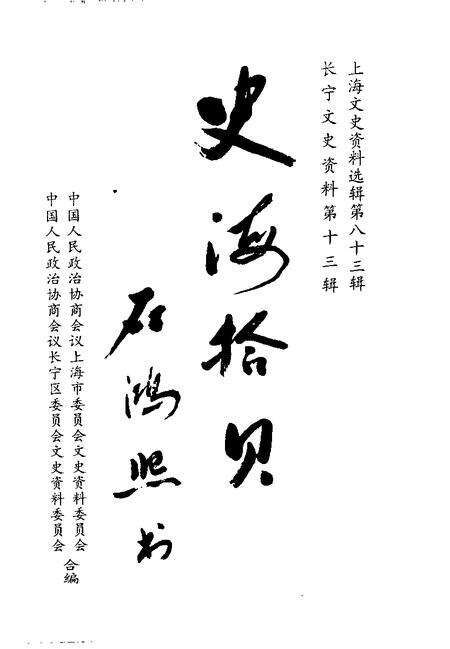 上海文史资料选辑第八十三辑
长宁文史资料第十三辑
史海拾贝
石鸿熙书
中国人民政治协商会议上海市委员会文史资料委员会
中国人民政治协商会议长宁区委员会文史资料委员会
合编